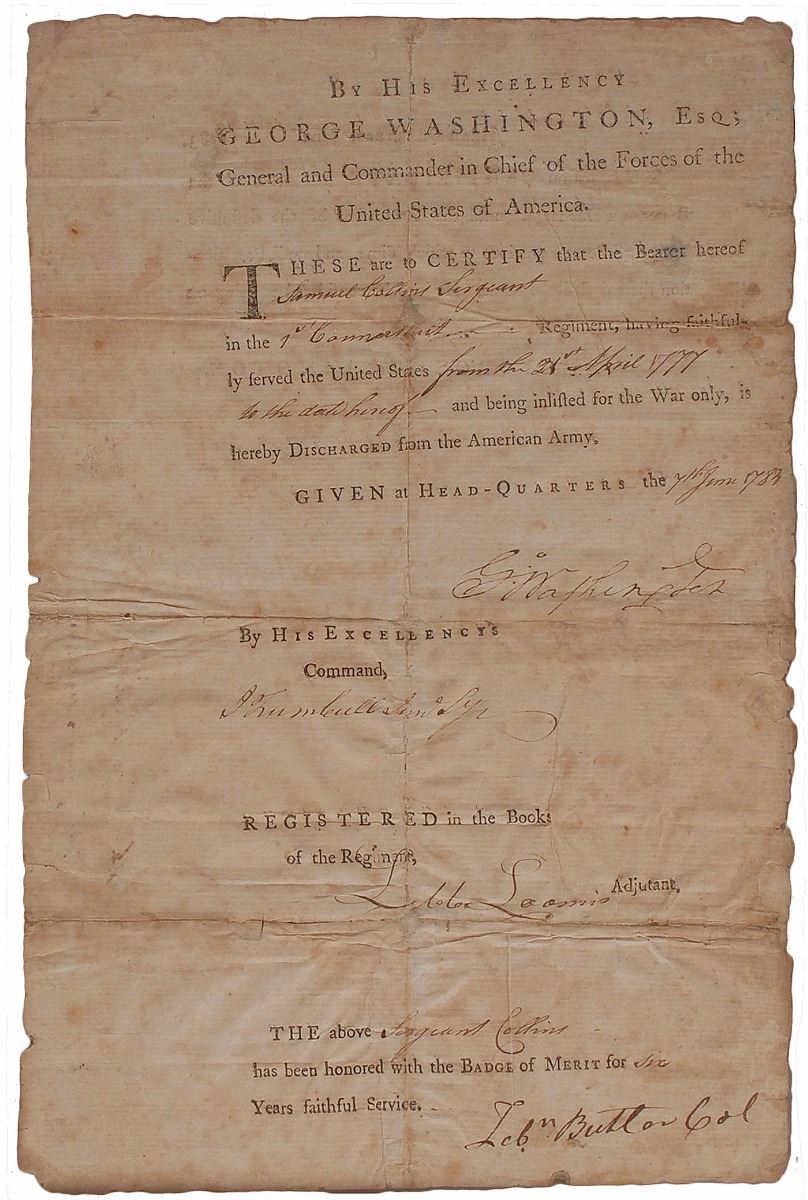 By His Excellency
GEORGE WASHINGTON, Esq;
General and Commander in Chief of the Forces of the
United States of America.
THESE are to CERTIFY that the Bearer hereof
Samuel Collins Sergeant
in the 1st Connecticut Regiment, having faithful-
ly served the United States from the 21st April 1777
to the date hereof — and being inlisted for the War only, is
hereby Discharged from the American Army.
GIVEN at Head-Quarters the 7th June 1783
Go Washington
By His Excellency's
Command,
J Trumbull Junr Sy
REGISTERED in the Books
of the Regiment,
Loomis Adjutant,
THE above Sergeant Collins
has been honored with the Badge of Merit for six
Years faithful Service.
Zebn Butler Col